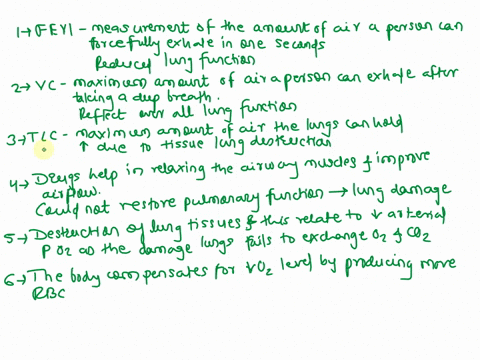 1→ (FEV1 - measurement of the amount of air a person can
forcefully exhale in one seconds
Reduced lung function
2→ VC - maximum amount of air a person can exhale after
taking a deep breath.
Reflect over all lung function
3→ TLC - maximum amount of air the lungs can hold
↑ due to tissue lung destruction
4→ Drugs help in relaxing the airway muscles & improve
airflow.
Could not restore pulmonary function → lung damage
5→ Destruction of lung tissues & this relate to ↓ arterial
PO2 as the damage lungs fails to exchange O2 & CO2
6→ The body compensates for ↓O2 level by producing more
RBC